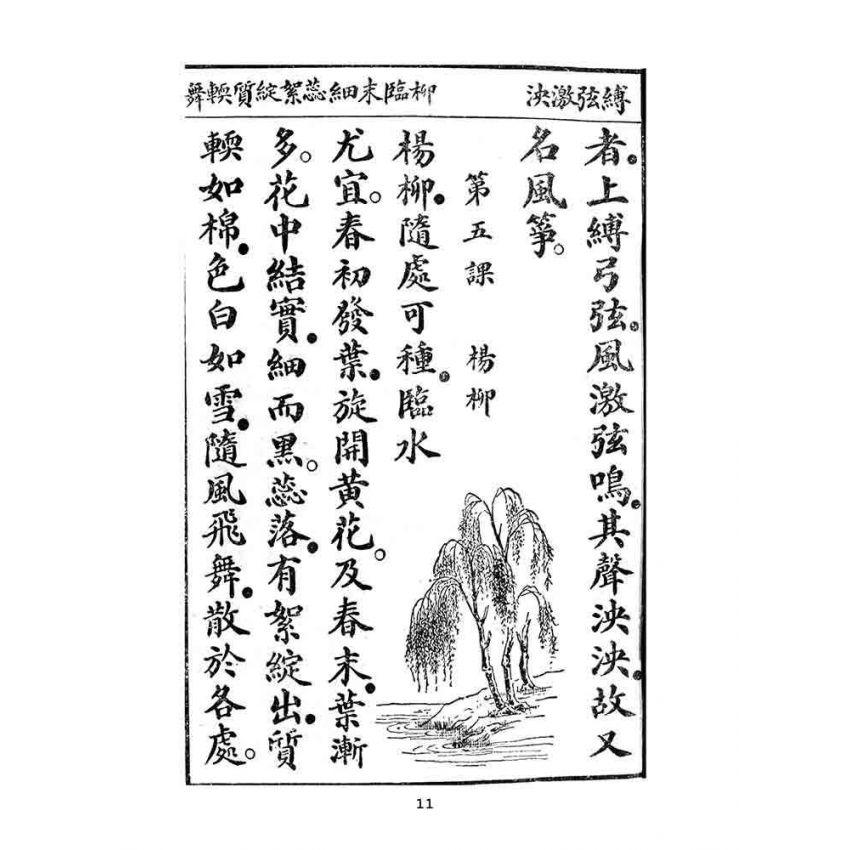 縛弦激泱
柳臨末細蕊絮綻質輭舞
者、上縛弓弦、風激弦鳴、其聲泱泱、故又
名風箏。
第五課　楊柳
楊柳、隨處可種、臨水
尤宜。春初發葉、旋開黃花。及春末、葉漸
多。花中結實、細而黑。蕊落、有絮綻出、質
輭如棉、色白如雪、隨風飛舞、散於各處。
11